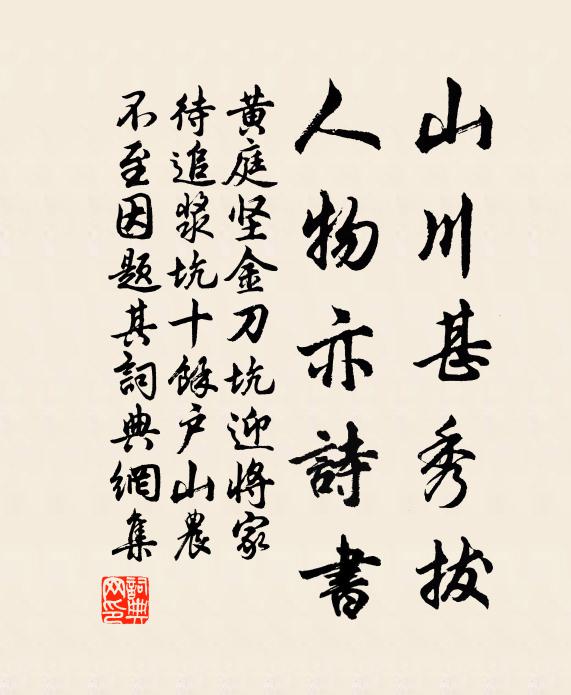 山川甚秀拔
人物亦詩書
黄庭坚金刀坑迎将家
待追漿坑十餘户山農
不至因题其詞典網集
詞典
网印